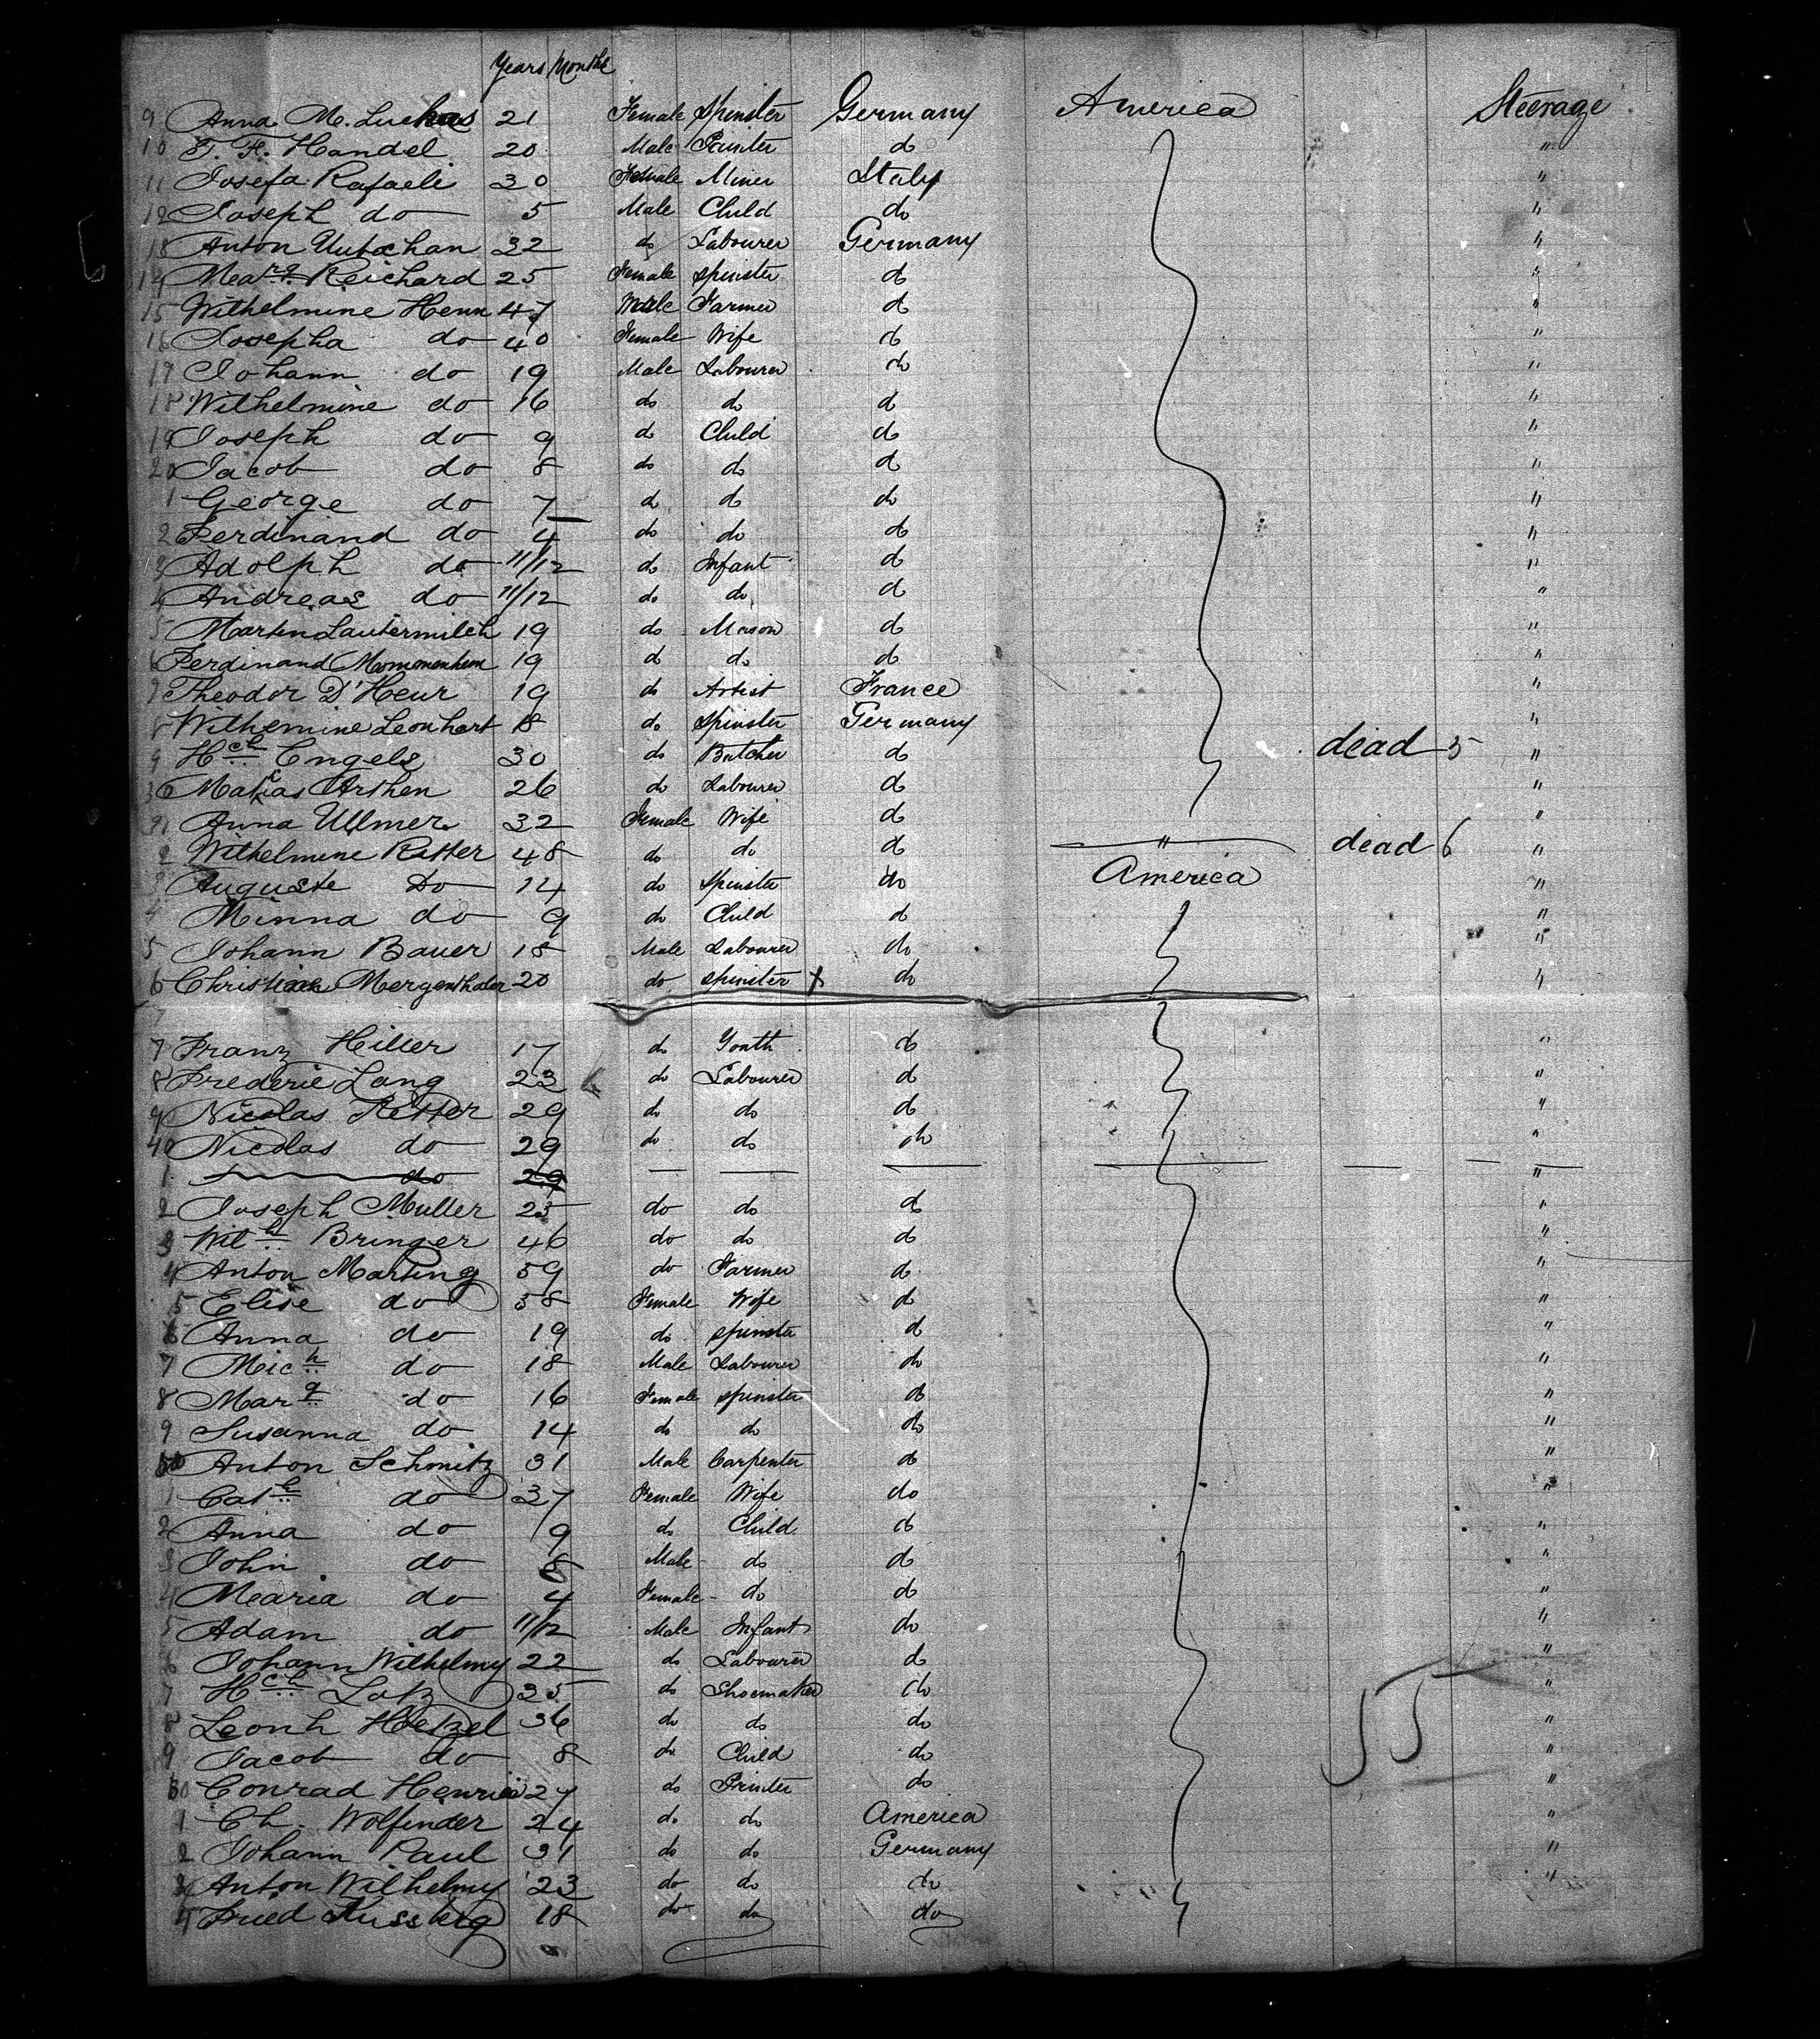 Years Months
9 Anna M. Luckas 21 Female Spinster Germany America Steerage
10 T. F. Handel 20 Male Printer do "
11 Josefa Rafaeli 30 Female Miner Italy "
12 Joseph do 5 Male Child do "
13 Anton 32 do Labourer Germany "
14 Marg. Reichard 25 Female Spinster do "
15 Wilhelmine Henn 47 Male Farmer do "
16 Josepha do 40 Female Wife do "
17 Johann do 19 Male Labourer do "
18 Wilhelmine do 16 do do do "
19 Joseph do 9 do Child do "
20 Jacob do 8 do do do "
1 George do 7 do do do "
2 Ferdinand do 4 do do do "
3 Adolph do 11/12 do Infant do "
4 Andreas do 11/12 do do do "
5 Marten Lautermilch 19 do Mason do "
6 Ferdinand 19 do do do "
7 Theodor D'Heur 19 do Artist France "
8 Wilhemine Leonhart 18 do Spinster Germany "
9 Hch Engels 30 do Butcher do dead 5 "
30 Matias Arthen 26 do Labourer do "
31 Anna Ullmer 32 Female Wife do "
2 Wilhelmine Ritter 48 do do do " dead 6 "
3 Auguste Do 14 do Spinster do America "
4 Minna do 9 do Child do "
5 Johann Bauer 18 Male Labourer do "
6 Christine Mergenthaler 20 do Spinster x do "
7
7 Franz Hiller 17 do Youth do "
8 Frederic Lang 23 do Labourer do "
9 Nicolas Ritter 29 do do do "
40 Nicolas do 29 do do do "
1 do 29 "
2 Joseph Muller 25 do do do "
3 Wilh Bringer 46 do do do "
4 Anton Marting 59 do Farmer do "
5 Elise do 58 Female Wife do "
6 Anna do 19 do Spinster do "
7 Mich do 18 Male Labourer do "
8 Marg do 16 Female Spinster do "
9 Susanna do 14 do do do "
50 Anton Schmitz 31 Male Carpenter do "
1 Cath do 37 Female Wife do "
2 Anna do 9 do Child do "
3 John do 8 Male do do "
4 Maria do 4 Female do do "
5 Adam do 11/12 Male Infant do "
6 Johann Wilhelmy 22 do Labourer do "
7 Hch Lotz 25 do Shoemaker do "
8 Leonh Hetzel 36 do do do "
9 Jacob do 8 do Child do "
60 Conrad Henrici 27 do Printer do "
1 Ch. Wolfinder 24 do do America "
2 Johann Paul 31 do do Germany "
3 Anton Wilhelmy 23 do do do "
4 Fried 18 do do do